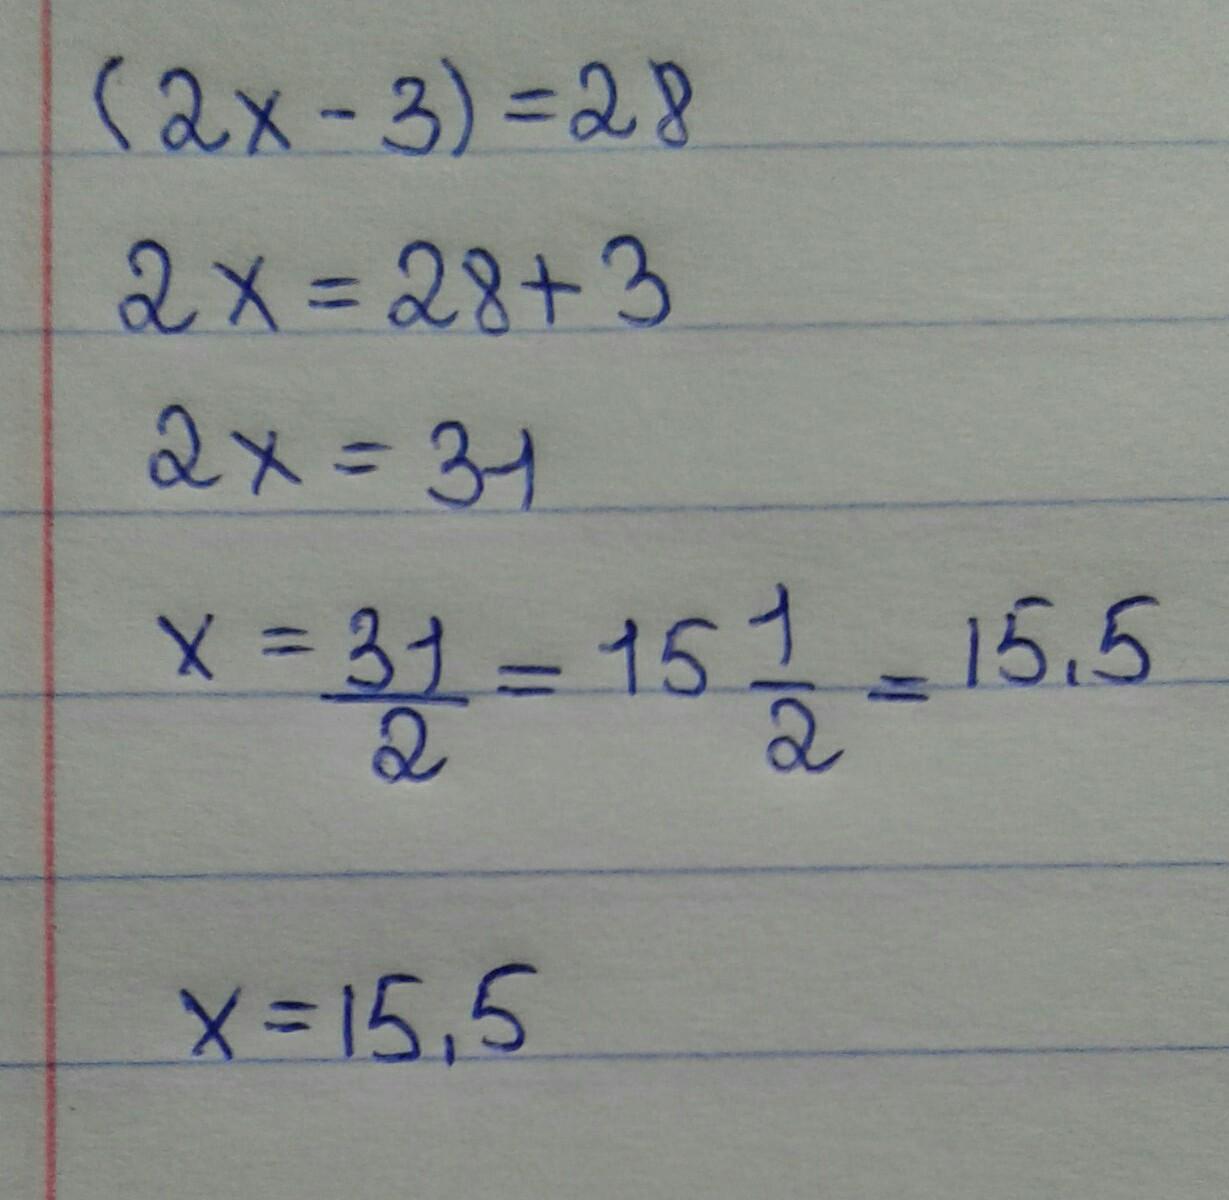 (2x - 3) = 28
2x = 28 + 3
2x = 31
x = 31/2 = 15 1/2 = 15,5
x = 15,5